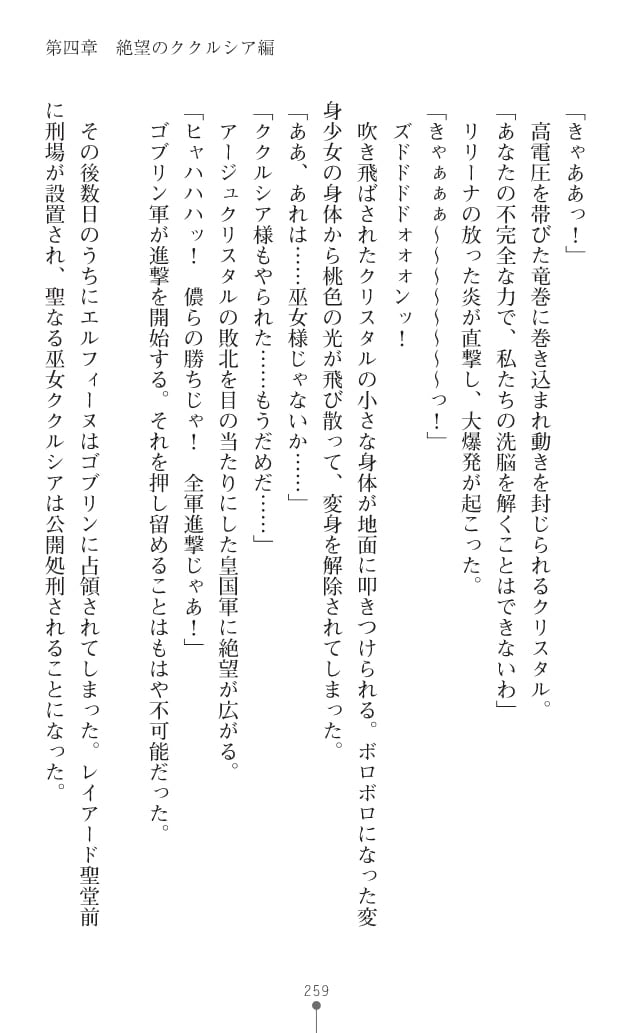 第四章　絶望のククルシア編
「きゃああっ！」
　高電圧を帯びた竜巻に巻き込まれ動きを封じられるクリスタル。
「あなたの不完全な力で、私たちの洗脳を解くことはできないわ」
　リリーナの放った炎が直撃し、大爆発が起こった。
「きゃぁぁぁ～～～～～～～っ！」
　ズドドドドォォォンッ！
　吹き飛ばされたクリスタルの小さな身体が地面に叩きつけられる。ボロボロになった変
身少女の身体から桃色の光が飛び散って、変身を解除されてしまった。
「ああ、あれは……巫女様じゃないか……」
「ククルシア様もやられた……もうだめだ……」
　アージュクリスタルの敗北を目の当たりにした皇国軍に絶望が広がる。
「ヒャハハハッ！　儂らの勝ちじゃ！　全軍進撃じゃあ！」
　ゴブリン軍が進撃を開始する。それを押し留めることはもはや不可能だった。
　その後数日のうちにエルフィーヌはゴブリンに占領されてしまった。レイアード聖堂前
に刑場が設置され、聖なる巫女ククルシアは公開処刑されることになった。
259